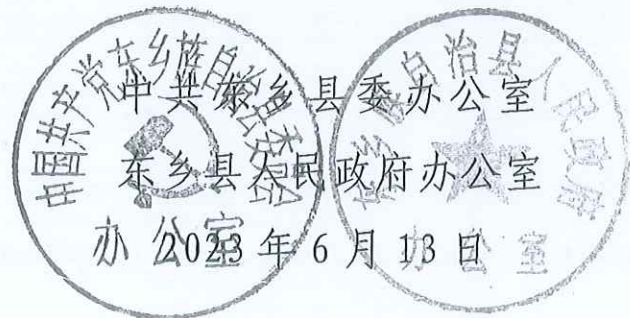 中共东乡县委办公室
东乡县人民政府办公室
2023年6月13日
中国共产党东乡族自治县委员会
办公室
东乡族自治县人民政府
办公室